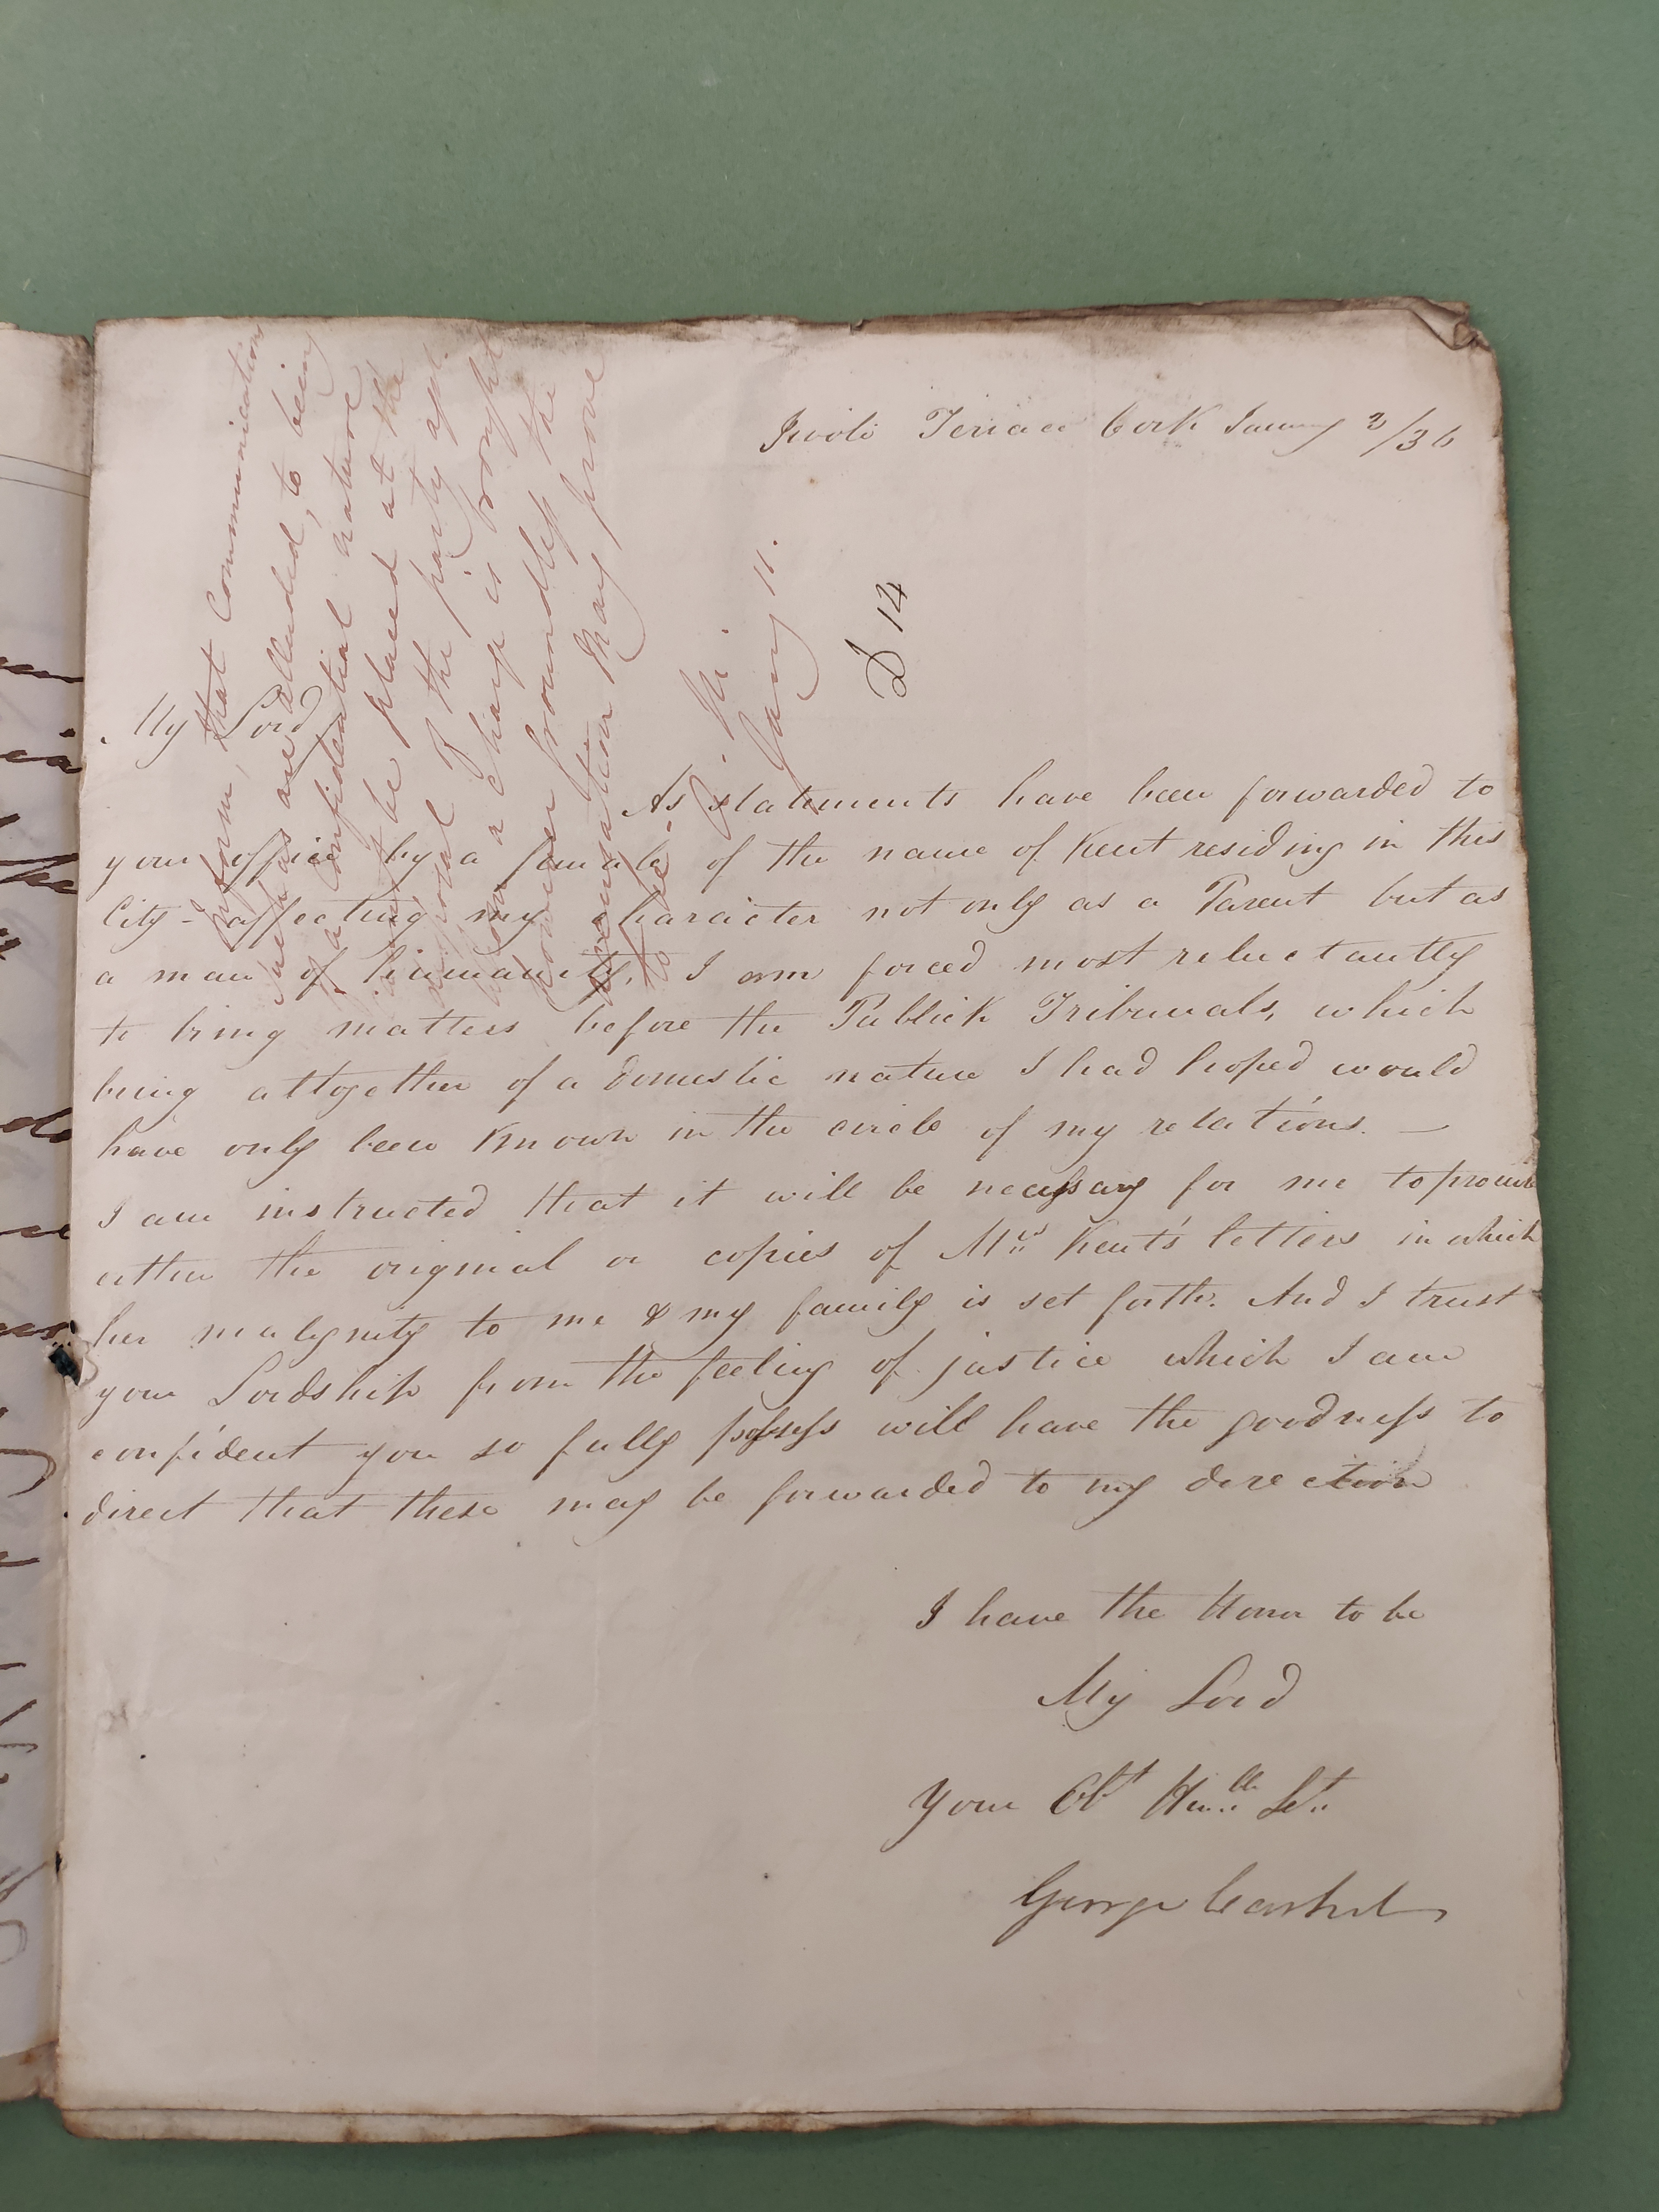 Tivoli Terrace Cork January 3/36
My Lord
As statements have been forwarded to
your office by a female of the name of Kent residing in this
City - affecting my character not only as a Parent but as
a man of humanity, I am forced most reluctantly
to bring matters before the Publick Tribunals, which
being altogether of a domestic nature I had hoped would
have only been known in the circle of my relations. —
I am instructed that it will be necessary for me to provide
either the original or copies of Mrs Kent's letters in which
her malignity to me & my family is set forth. And I trust
your Lordship from the feeling of justice which I am
confident you so fully possess will have the goodness to
direct that these may be forwarded to my direction
I have the Honor to be
My Lord
Your Obt Humble St
George
Inform, that Communication
such as are alluded to being
of a confidential nature
cannot be placed at the
disposal of the party agt
whom a charge is brought
however groundless the
accusation may prove
to be.
Jany 11.
D 14